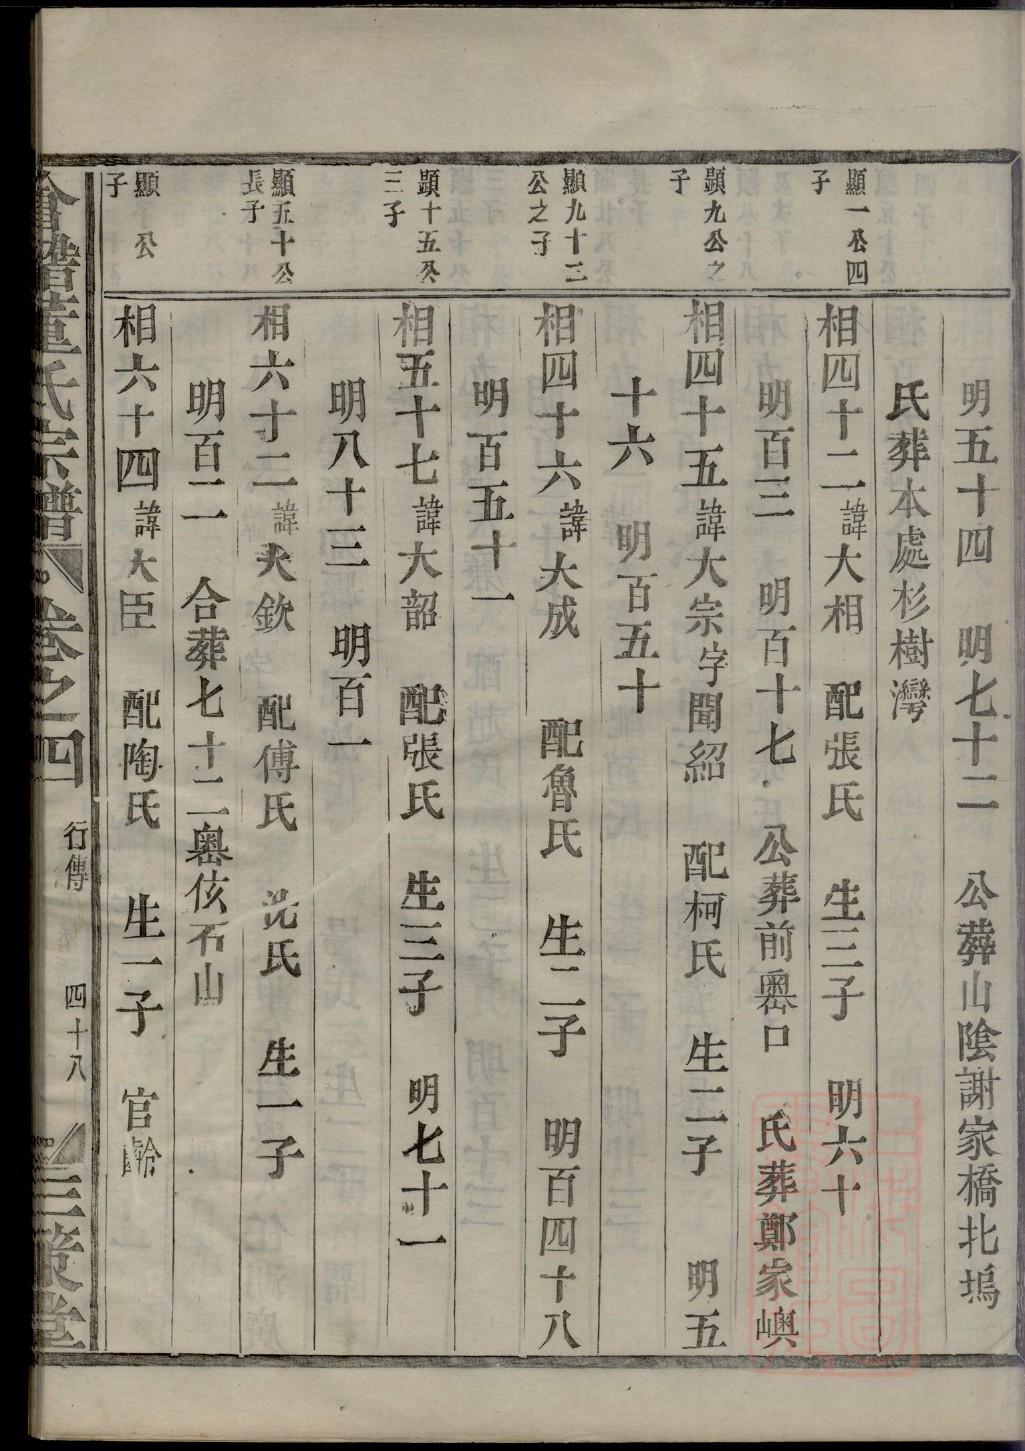 明五十四　明七十二　公葬山陰謝家橋北塢
氏葬本處杉樹灣
顯一公四
子
相四十二諱大相　配張氏　生三子　明六十
明百三　明百十七　公葬前嶴口　氏葬鄭家嶼
顯九公之
子
相四十五諱大宗字聞紹　配柯氏　生二子　明五
十六　明百五十
顯九十三
公之子
相四十六諱大成　配魯氏　生二子　明百四十八
明百五十一
顯十五公
三子
相五十七諱大韶　配張氏　生三子　明七十一
明八十三　明百一
顯五十公
長子
相六十二諱大欽　配傅氏　沈氏　生一子
明百二　合葬七十二嶴伭石山
顯　公
子
相六十四諱大臣　配陶氏　生一子　官
會稽董氏宗譜　卷之四　行傳　四十八　三策堂